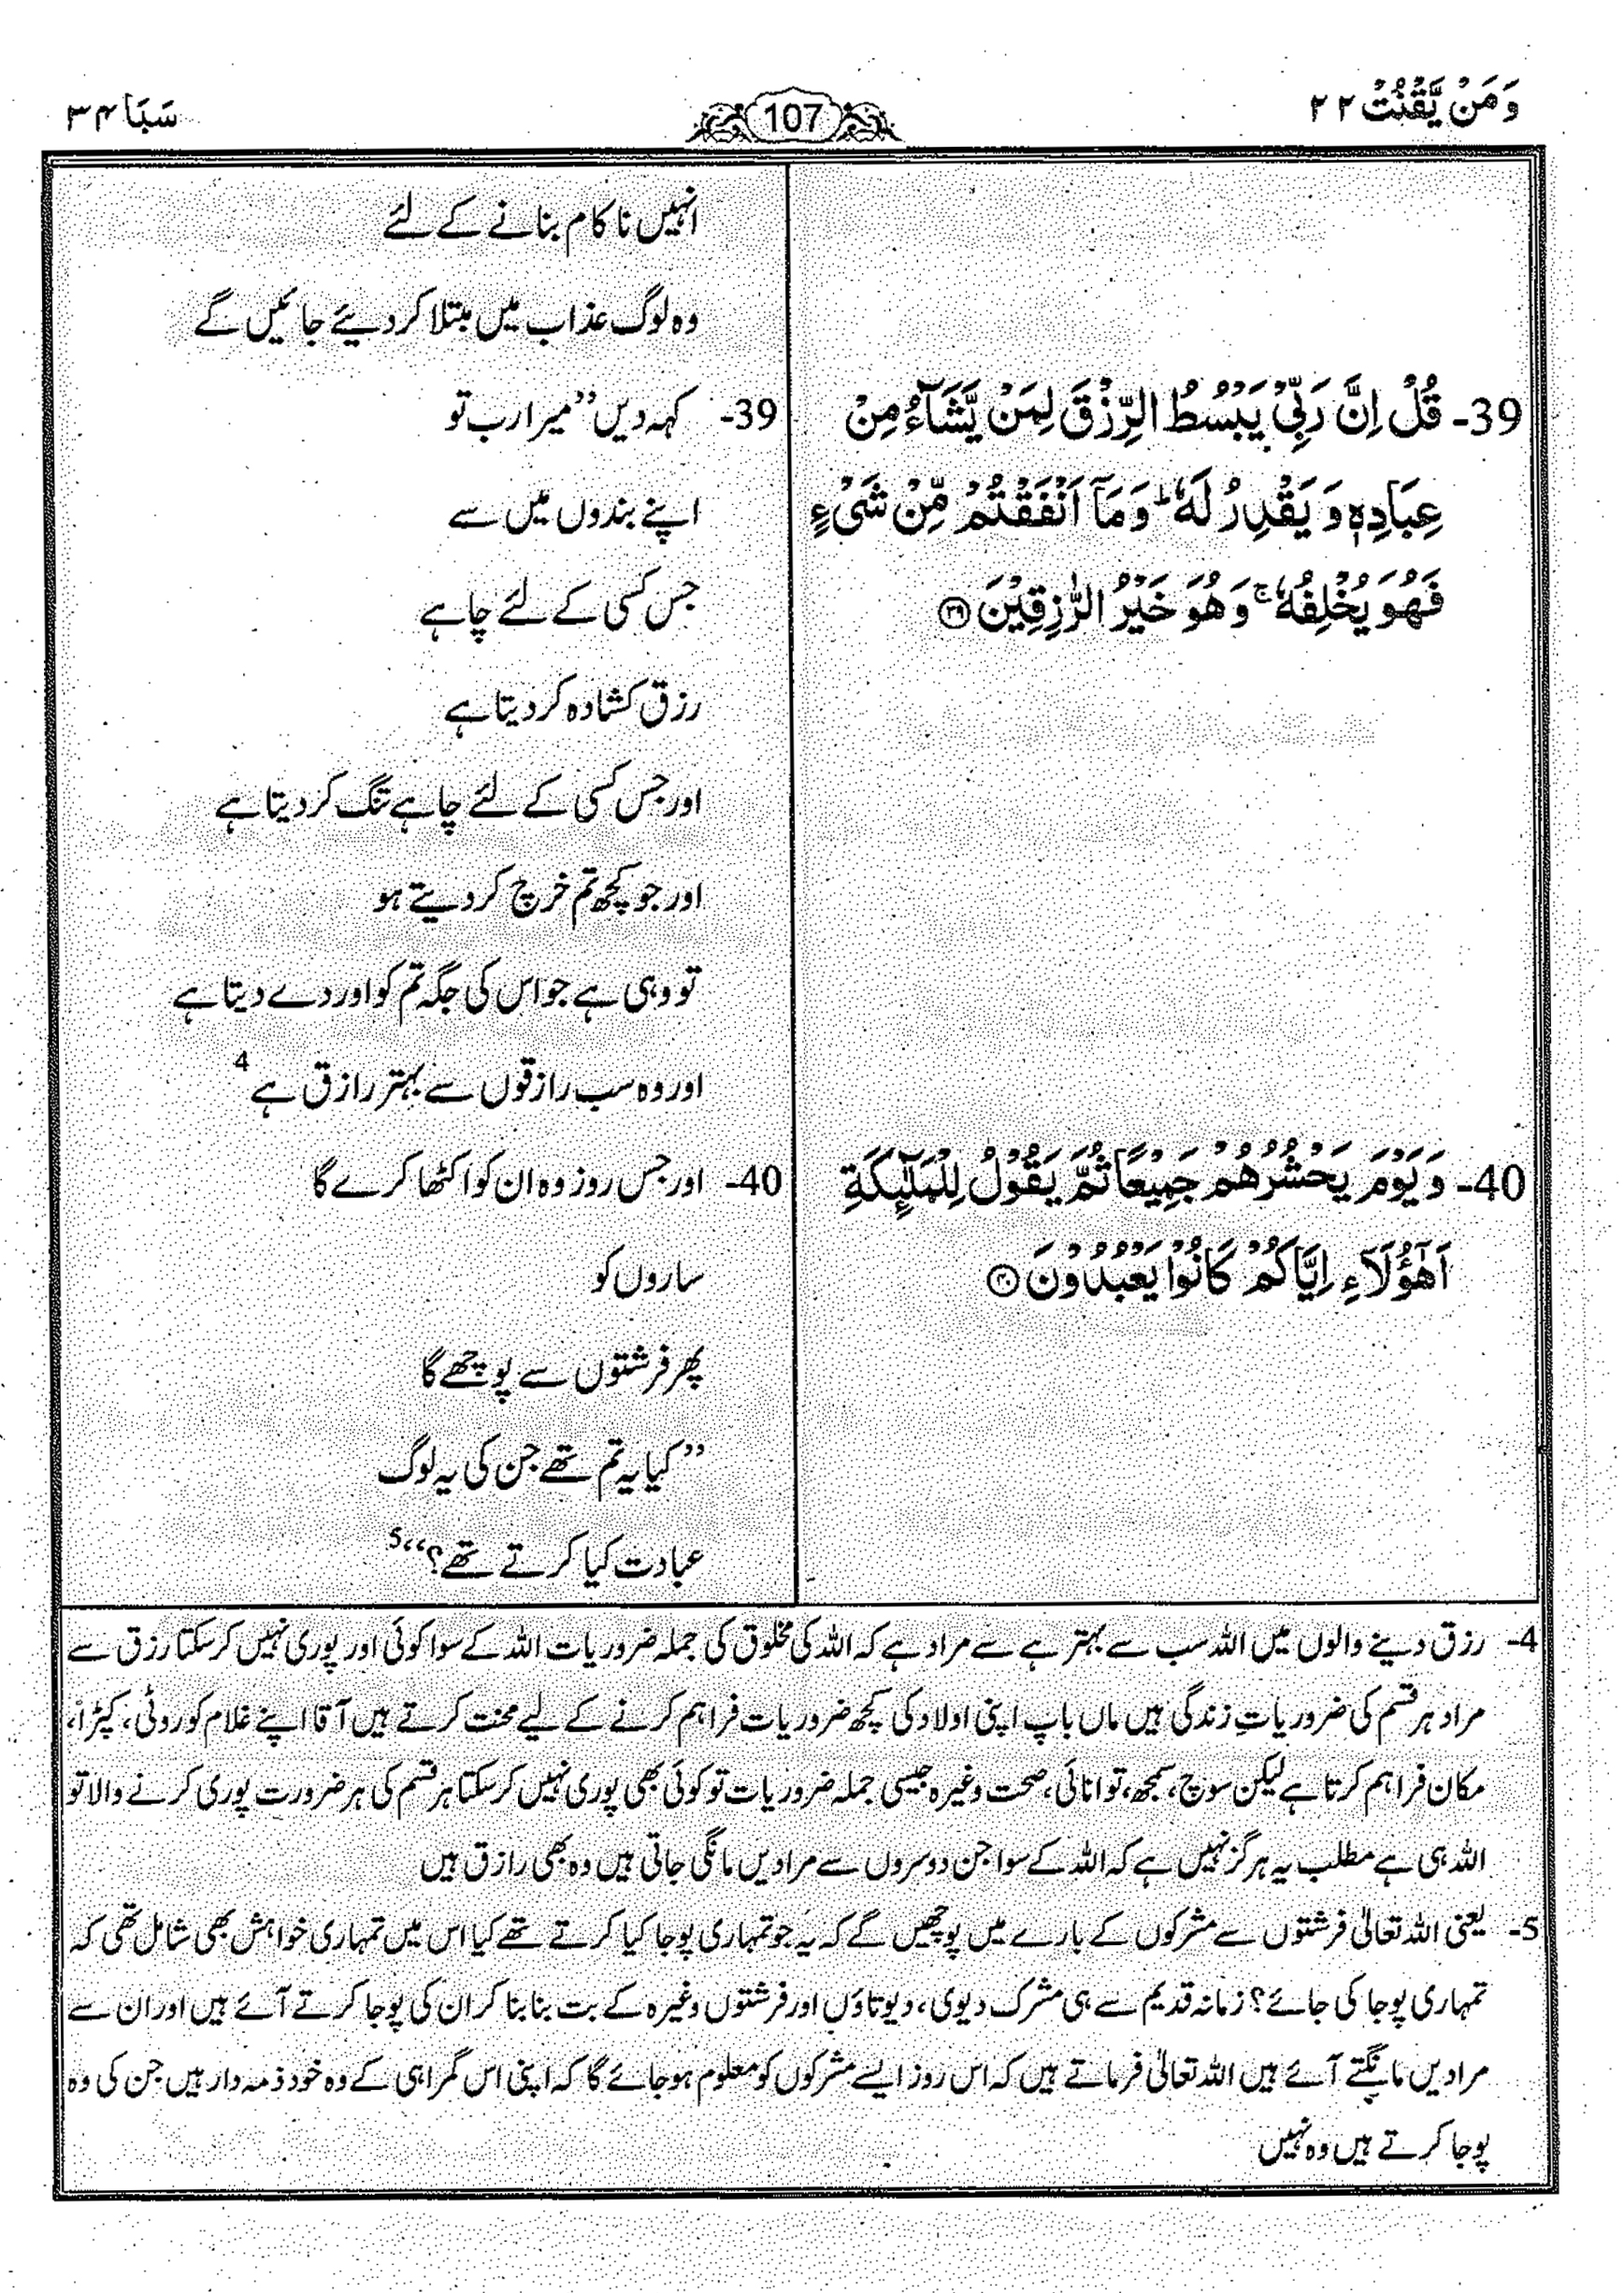 وَمَنْ يَّقْنُتْ ۲۲
107
سَبَا ۳۴
39- قُلْ اِنَّ رَبِّیْ یَبْسُطُ الرِّزْقَ لِمَنْ یَّشَآءُ مِنْ
عِبَادِهٖ وَ یَقْدِرُ لَهٗ ؕ وَ مَاۤ اَنْفَقْتُمْ مِّنْ شَیْءٍ
فَهُوَ یُخْلِفُهٗ ۚ وَ هُوَ خَیْرُ الرّٰزِقِیْنَ ۝۳۹
40- وَ یَوْمَ یَحْشُرُهُمْ جَمِیْعًا ثُمَّ یَقُوْلُ لِلْمَلٰٓىِٕكَةِ
اَهٰۤؤُلَآءِ اِیَّاكُمْ كَانُوْا یَعْبُدُوْنَ ۝۴۰
انہیں ناکام بنانے کے لئے
وہ لوگ عذاب میں مبتلا کر دیئے جائیں گے
39- کہہ دیں ”میرا رب تو
اپنے بندوں میں سے
جس کسی کے لئے چاہے
رزق کشادہ کر دیتا ہے
اور جس کسی کے لئے چاہے تنگ کر دیتا ہے
اور جو کچھ تم خرچ کر دیتے ہو
تو وہی ہے جو اس کی جگہ تم کو اور دے دیتا ہے
اور وہ سب رازقوں سے بہتر رازق ہے 4
40- اور جس روز وہ ان کو اکٹھا کرے گا
ساروں کو
پھر فرشتوں سے پوچھے گا
”کیا یہ تم تھے جن کی یہ لوگ
عبادت کیا کرتے تھے؟“ 5
4- رزق دینے والوں میں اللہ سب سے بہتر ہے سے مراد ہے کہ اللہ کی مخلوق کی جملہ ضروریات اللہ کے سوا کوئی اور پوری نہیں کر سکتا رزق سے
مراد ہر قسم کی ضروریاتِ زندگی ہیں ماں باپ اپنی اولاد کی کچھ ضروریات فراہم کرنے کے لیے محنت کرتے ہیں آقا اپنے غلام کو روٹی، کپڑا،
مکان فراہم کرتا ہے لیکن سوچ، سمجھ، توانائی، صحت وغیرہ جیسی جملہ ضروریات تو کوئی بھی پوری نہیں کر سکتا ہر قسم کی ہر ضرورت پوری کرنے والا تو
اللہ ہی ہے مطلب یہ ہرگز نہیں ہے کہ اللہ کے سوا جن دوسروں سے مرادیں مانگی جاتی ہیں وہ بھی رازق ہیں
5- یعنی اللہ تعالٰی فرشتوں سے مشرکوں کے بارے میں پوچھیں گے کہ یہ جو تمہاری پوجا کیا کرتے تھے کیا اس میں تمہاری خواہش بھی شامل تھی کہ
تمہاری پوجا کی جائے؟ زمانہ قدیم سے ہی مشرک دیوی، دیوتاؤں اور فرشتوں وغیرہ کے بت بنا بنا کر ان کی پوجا کرتے آئے ہیں اور ان سے
مرادیں مانگتے آئے ہیں اللہ تعالٰی فرماتے ہیں کہ اس روز ایسے مشرکوں کو معلوم ہو جائے گا کہ اپنی اس گمراہی کے وہ خود ذمہ دار ہیں جن کی وہ
پوجا کرتے ہیں وہ نہیں